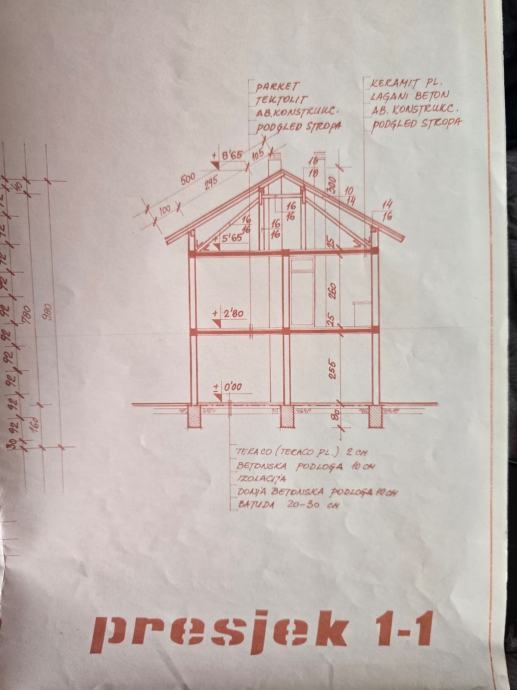 PARKET
TEKTOLIT
AB. KONSTRUKC.
PODGLED STROPA
KERAMIT PL.
LAGANI BETON
AB. KONSTRUKC.
PODGLED STROPA
+ 8'65
105
500
295
100
16
18
300
10
14
14
16
16
16
16
16
16
16
+ 5'65
25
260
+ 2'80
25
255
± 0'00
80
92
92
92
92
92
92
30
160
780
980
TERACO (TERACO PL.) 2 CM
BETONSKA PODLOGA 10 CM
IZOLACIJA
DONJA BETONSKA PODLOGA 10 CM
BATUDA 20-30 CM
presjek 1-1